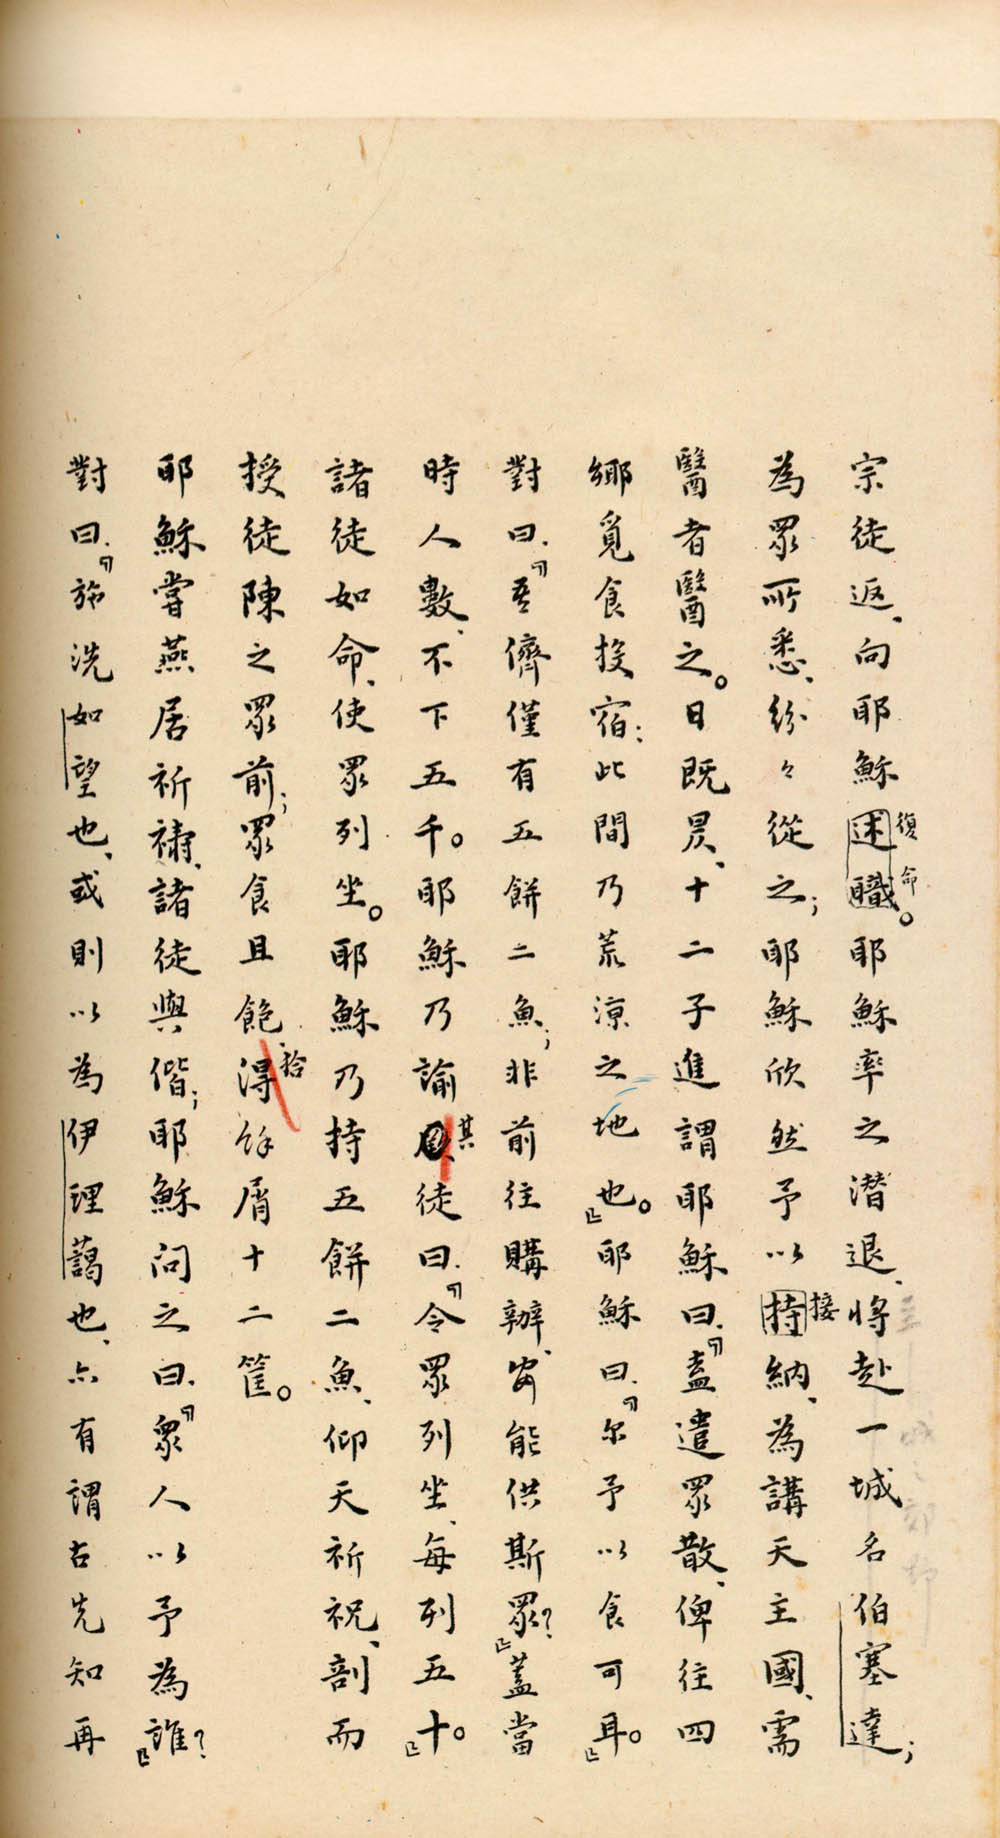 宗徒返、向耶穌述職復命。耶穌率之潛退、將赴一城名伯塞達；
為眾所悉、紛々從之；耶穌欣然予以持接納、為講天主國、需
醫者醫之。日既昃、十二子進謂耶穌曰、『盍遣眾散、俾往四
鄉覓食投宿：此間乃荒涼之地也。』耶穌曰、『尔予以食可耳。』
對曰、『吾儕僅有五餅二魚；非前往購辦、安能供斯眾？』蓋當
時人數、不下五千。耶穌乃諭其徒曰、『令眾列坐、每列五十。』
諸徒如命、使眾列坐。耶穌乃持五餅二魚、仰天祈祝、剖而
授徒陳之眾前；眾食且飽、得拾餘屑十二筐。
耶穌嘗燕居祈禱、諸徒與偕；耶穌問之曰、『眾人以予為誰？』
對曰、『施洗如望也、或則以為伊理藹也、亦有謂古先知再